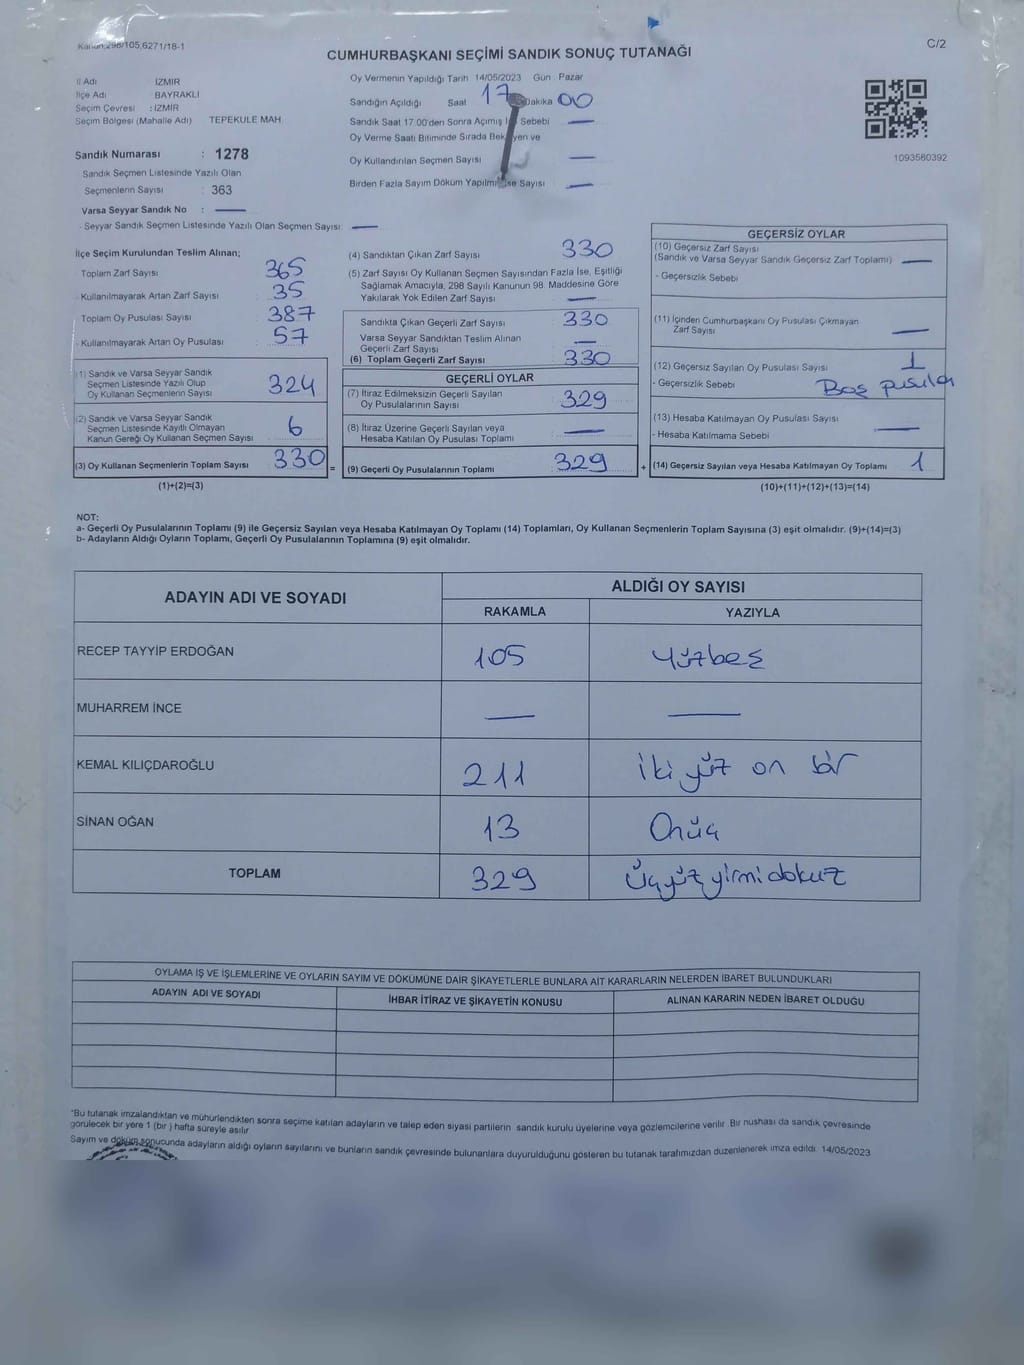 Kanun,298/105,6271/18-1
C/2
CUMHURBAŞKANI SEÇİMİ SANDIK SONUÇ TUTANAĞI
İl Adı İZMİR
İlçe Adı BAYRAKLI
Seçim Çevresi : İZMİR
Seçim Bölgesi (Mahalle Adı) TEPEKULE MAH.
Sandık Numarası : 1278
Sandık Seçmen Listesinde Yazılı Olan
Seçmenlerin Sayısı : 363
Varsa Seyyar Sandık No : —
Seyyar Sandık Seçmen Listesinde Yazılı Olan Seçmen Sayısı: —
Oy Vermenin Yapıldığı Tarih 14/05/2023 Gün Pazar
Sandığın Açıldığı Saat 17 Dakika 00
Sandık Saat 17:00'den Sonra Açılmış Sebebi —
Oy Verme Saati Bitiminde Sırada Bekleyen ve
Oy Kullandırılan Seçmen Sayısı —
Birden Fazla Sayım Döküm Yapılmış İse Sayısı —
1093580392
İlçe Seçim Kurulundan Teslim Alınan;
Toplam Zarf Sayısı 365
- Kullanılmayarak Artan Zarf Sayısı 35
Toplam Oy Pusulası Sayısı 387
- Kullanılmayarak Artan Oy Pusulası 57
(1) Sandık ve Varsa Seyyar Sandık
Seçmen Listesinde Yazılı Olup
Oy Kullanan Seçmenlerin Sayısı 324
(2) Sandık ve Varsa Seyyar Sandık
Seçmen Listesinde Kayıtlı Olmayan
Kanun Gereği Oy Kullanan Seçmen Sayısı 6
(3) Oy Kullanan Seçmenlerin Toplam Sayısı 330 =
(1)+(2)=(3)
(4) Sandıktan Çıkan Zarf Sayısı 330
(5) Zarf Sayısı Oy Kullanan Seçmen Sayısından Fazla İse, Eşitliği
Sağlamak Amacıyla, 298 Sayılı Kanunun 98. Maddesine Göre
Yakılarak Yok Edilen Zarf Sayısı —
Sandıkta Çıkan Geçerli Zarf Sayısı 330
Varsa Seyyar Sandıktan Teslim Alınan
Geçerli Zarf Sayısı —
(6) Toplam Geçerli Zarf Sayısı 330
GEÇERLİ OYLAR
(7) İtiraz Edilmeksizin Geçerli Sayılan
Oy Pusulalarının Sayısı 329
(8) İtiraz Üzerine Geçerli Sayılan veya
Hesaba Katılan Oy Pusulası Toplamı —
(9) Geçerli Oy Pusulalarının Toplamı 329 +
GEÇERSİZ OYLAR
(10) Geçersiz Zarf Sayısı
(Sandık ve Varsa Seyyar Sandık Geçersiz Zarf Toplamı) —
- Geçersizlik Sebebi
(11) İçinden Cumhurbaşkanı Oy Pusulası Çıkmayan
Zarf Sayısı —
(12) Geçersiz Sayılan Oy Pusulası Sayısı 1
- Geçersizlik Sebebi Boş pusula
(13) Hesaba Katılmayan Oy Pusulası Sayısı —
- Hesaba Katılmama Sebebi
(14) Geçersiz Sayılan veya Hesaba Katılmayan Oy Toplamı 1
(10)+(11)+(12)+(13)=(14)
NOT:
a- Geçerli Oy Pusulalarının Toplamı (9) ile Geçersiz Sayılan veya Hesaba Katılmayan Oy Toplamı (14) Toplamları, Oy Kullanan Seçmenlerin Toplam Sayısına (3) eşit olmalıdır. (9)+(14)=(3)
b- Adayların Aldığı Oyların Toplamı, Geçerli Oy Pusulalarının Toplamına (9) eşit olmalıdır.
ADAYIN ADI VE SOYADI
ALDIĞI OY SAYISI
RAKAMLA YAZIYLA
RECEP TAYYİP ERDOĞAN 105 Yüzbeş
MUHARREM İNCE — —
KEMAL KILIÇDAROĞLU 211 İki yüz on bir
SİNAN OĞAN 13 Onüç
TOPLAM 329 Üçyüz yirmi dokuz
OYLAMA İŞ VE İŞLEMLERİNE VE OYLARIN SAYIM VE DÖKÜMÜNE DAİR ŞİKAYETLERLE BUNLARA AİT KARARLARIN NELERDEN İBARET BULUNDUKLARI
ADAYIN ADI VE SOYADI İHBAR İTİRAZ VE ŞİKAYETİN KONUSU ALINAN KARARIN NEDEN İBARET OLDUĞU
*Bu tutanak imzalandıktan ve mühürlendikten sonra seçime katılan adayların ve talep eden siyasi partilerin sandık kurulu üyelerine veya gözlemcilerine verilir. Bir nüshası da sandık çevresinde
görülecek bir yere 1 (bir) hafta süreyle asılır.
Sayım ve döküm sonucunda adayların aldığı oyların sayılarını ve bunların sandık çevresinde bulunanlara duyurulduğunu gösteren bu tutanak tarafımızdan düzenlenerek imza edildi. 14/05/2023